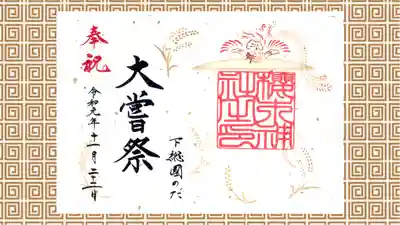 奉祝
大嘗祭
令和元年十一月二十三日
下総國のだ
櫻木神社之印